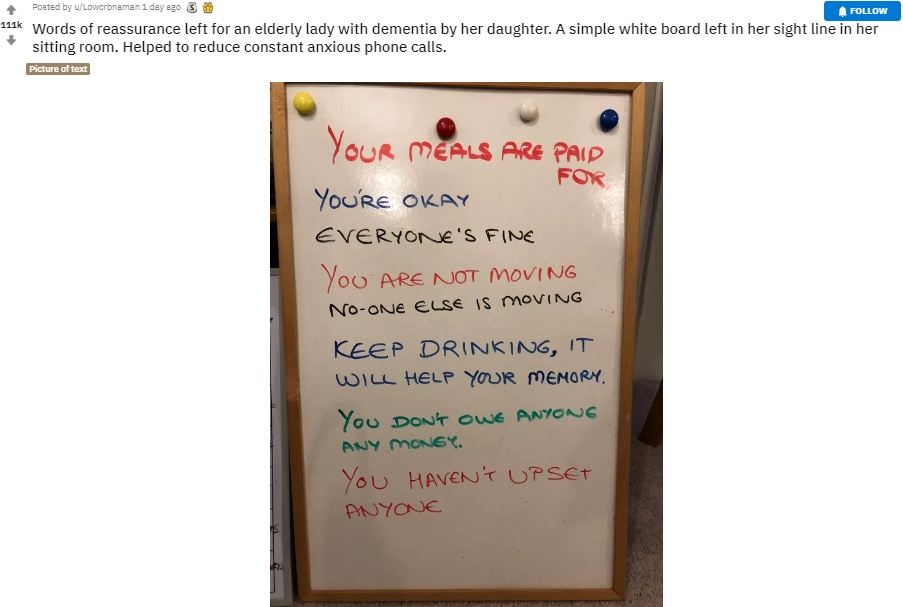 Posted by u/Lowcrbnaman 1 day ago
FOLLOW
111k
Words of reassurance left for an elderly lady with dementia by her daughter. A simple white board left in her sight line in her
sitting room. Helped to reduce constant anxious phone calls.
Picture of text
YOUR MEALS ARE PAID
FOR.
YOU'RE OKAY
EVERYONE'S FINE
YOU ARE NOT MOVING
NO-ONE ELSE IS MOVING
KEEP DRINKING, IT
WILL HELP YOUR MEMORY.
YOU DON'T OWE ANYONE
ANY MONEY.
YOU HAVEN'T UPSET
ANYONE